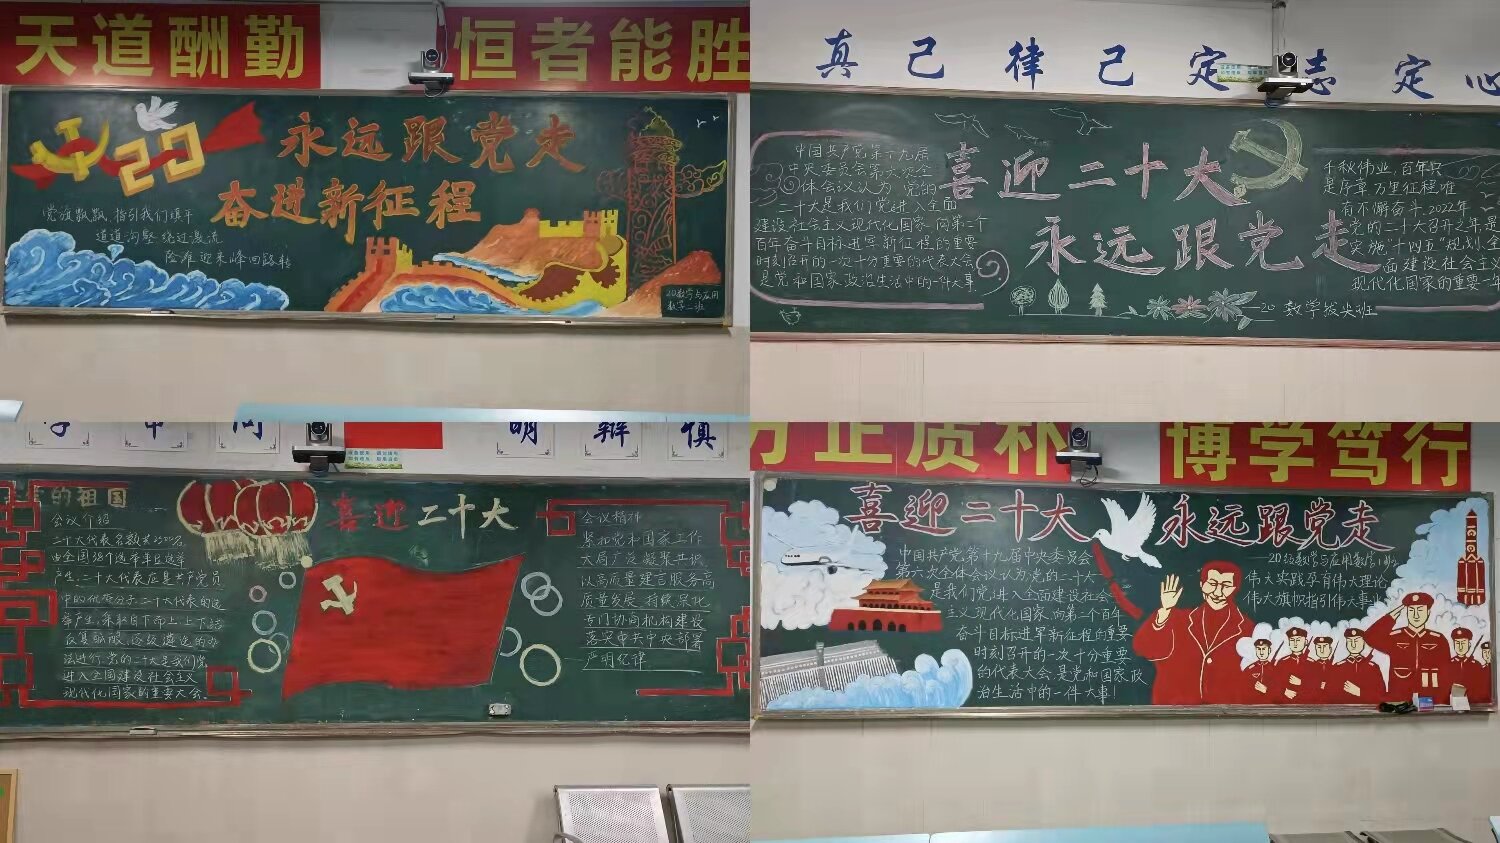 天道酬勤
恒者能胜
20
永远跟党走
奋进新征程
党旗飘飘,指引我们填平
道道沟壑 绕过激流
险难迎来峰回路转
20数学与应用
数学二班
真己律己定志定心
喜迎二十大
永远跟党走
中国共产党第十九届
中央委员会第六次全
体会议认为 党的
二十大是我们党进入全面
建设社会主义现代化国家,向第二个
百年奋斗目标进军新征程的重要
时刻召开的一次十分重要的代表大会
是党和国家政治生活中的一件大事
千秋伟业,百年只
是序章 万里征程难
有不懈奋斗.2022年
党的二十大召开之年是
实施"十四五"规划、全
面建设社会主义
现代化国家的重要一年
20 数学拔尖班
明 辩 慎
的祖国
喜迎二十大
会议介绍
二十大代表名额共2300名
由全国38个选举单位选举
产生,二十大代表应是共产党员
中的优秀分子.二十大代表的选
举产生,采取自下而上、上下结
合
进行.党的二十大是我们党
进入全面建设社会主义
现代化国家的重要大会.
会议精神
紧扣党和国家工作
大局广泛凝聚共识
以高质量建言服务高
质量发展 持续深化
专门协商机构建设
落实中共中央部署
严明纪律
方正质朴
博学笃行
喜迎二十大
永远跟党走
中国共产党,第十九届中央委员会
第六次全体会议认为:党的二十大
是我们党进入全面建设社会
主义现代化国家、向第二个百年
奋斗目标进军新征程的重要
时刻召开的一次十分重要
的代表大会,是党和国家政
治生活中的一件大事!
伟大实践孕育伟大理论
伟大旗帜指引伟大事业